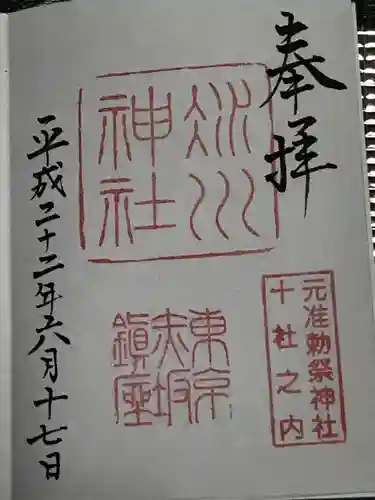 奉拝
氷川
神社
元准勅祭神社
十社之内
東京
赤坂
鎮座
平成二十二年六月十七日